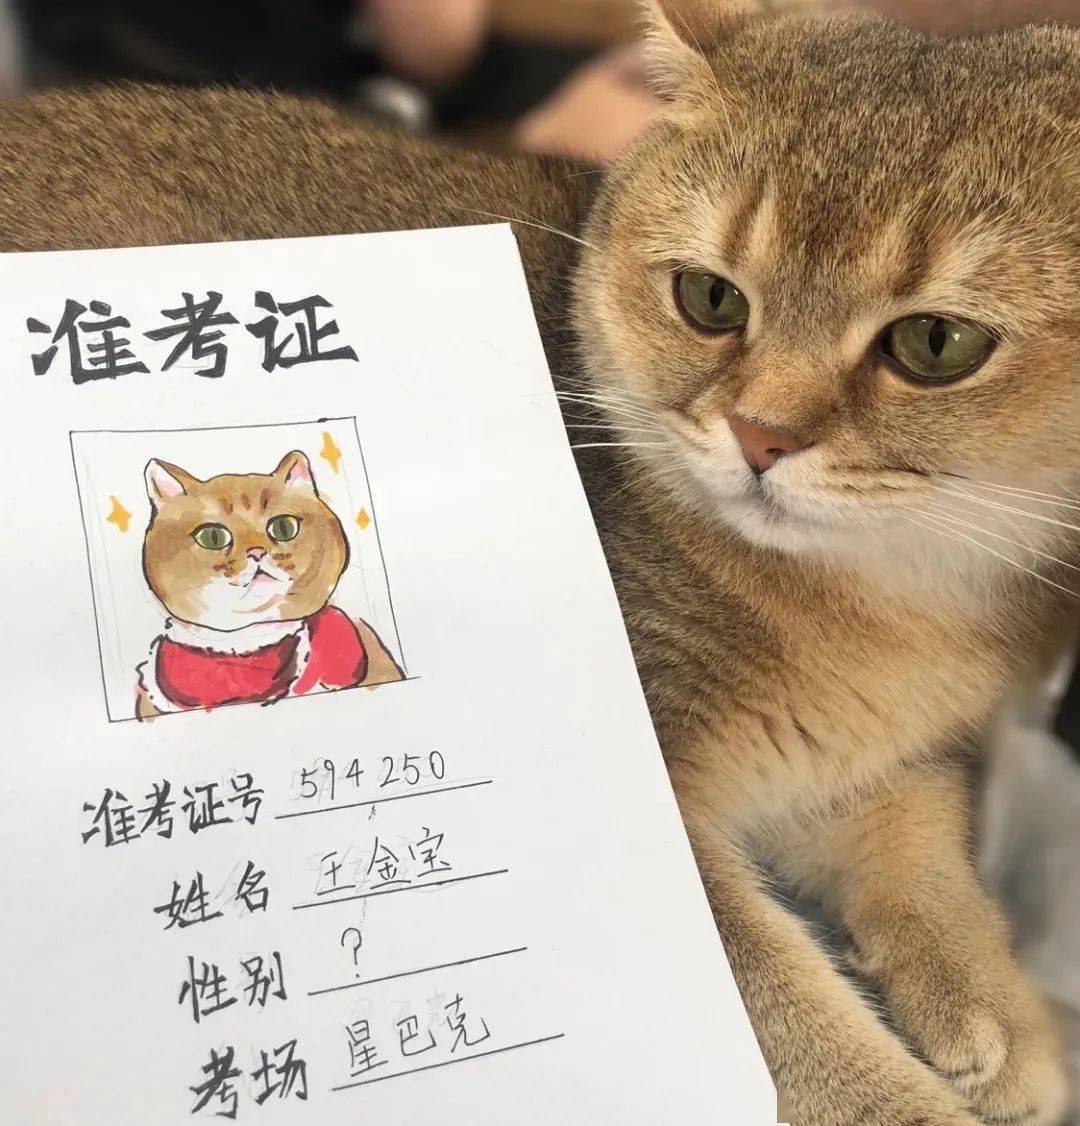 准考证
准考证号 594250
姓名 王金宝
性别 ?
考场 星巴克